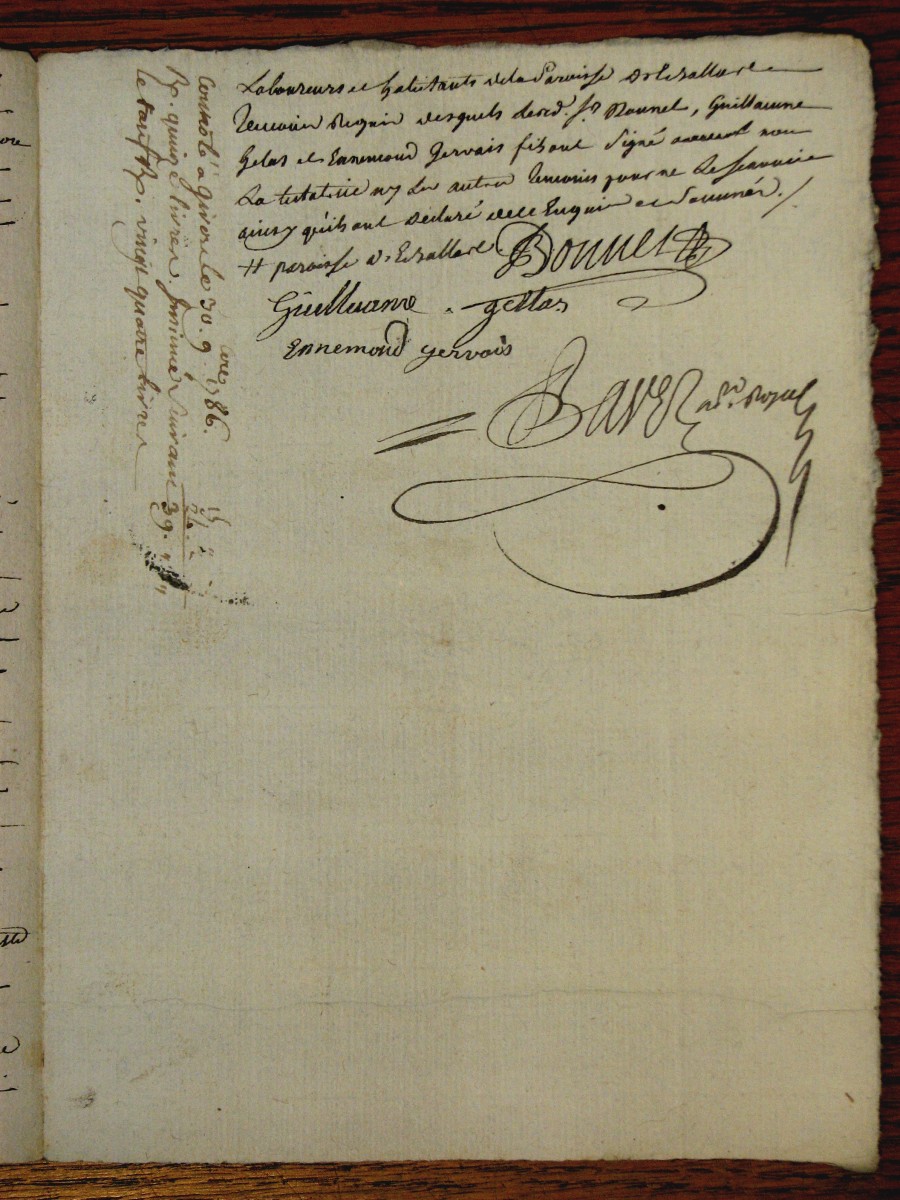 Laboureurs et habitants de la Paroisse d'Echallart
temoins Requis desquels led. sr. Bonnet, Guillaume
Gelas et Ennemond Gervais fils ont signé non
La testatrice ny Les autres temoins pour ne Le scavoir
ainsy qu'ils ont declaré de ce Enquis et Sommés./
# paroisse d'Echallart Bonnet
Guilluame gellas
Ennemond gervais
Bavet nre. Royal
Controlé a Givors le 30. 9bre 1786.
R. quinze livres. Insinué suivant
le tarif R. vingt quatre livres
15
24
39